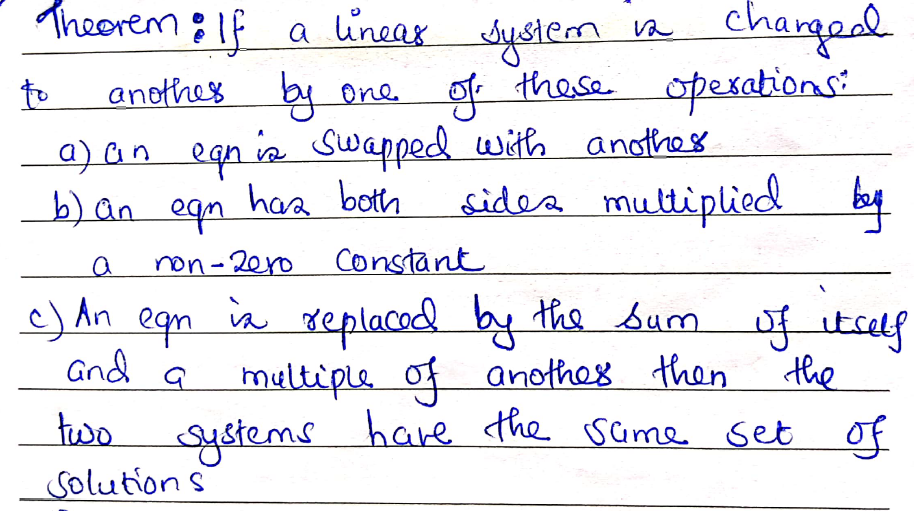 Theorem : If a linear system is changed
to another by one of these operations:
a) an eqn is swapped with another
b) an eqn has both sides multiplied by
a non-zero constant
c) An eqn is replaced by the sum of itself
and a multiple of another then the
two systems have the same set of
solutions